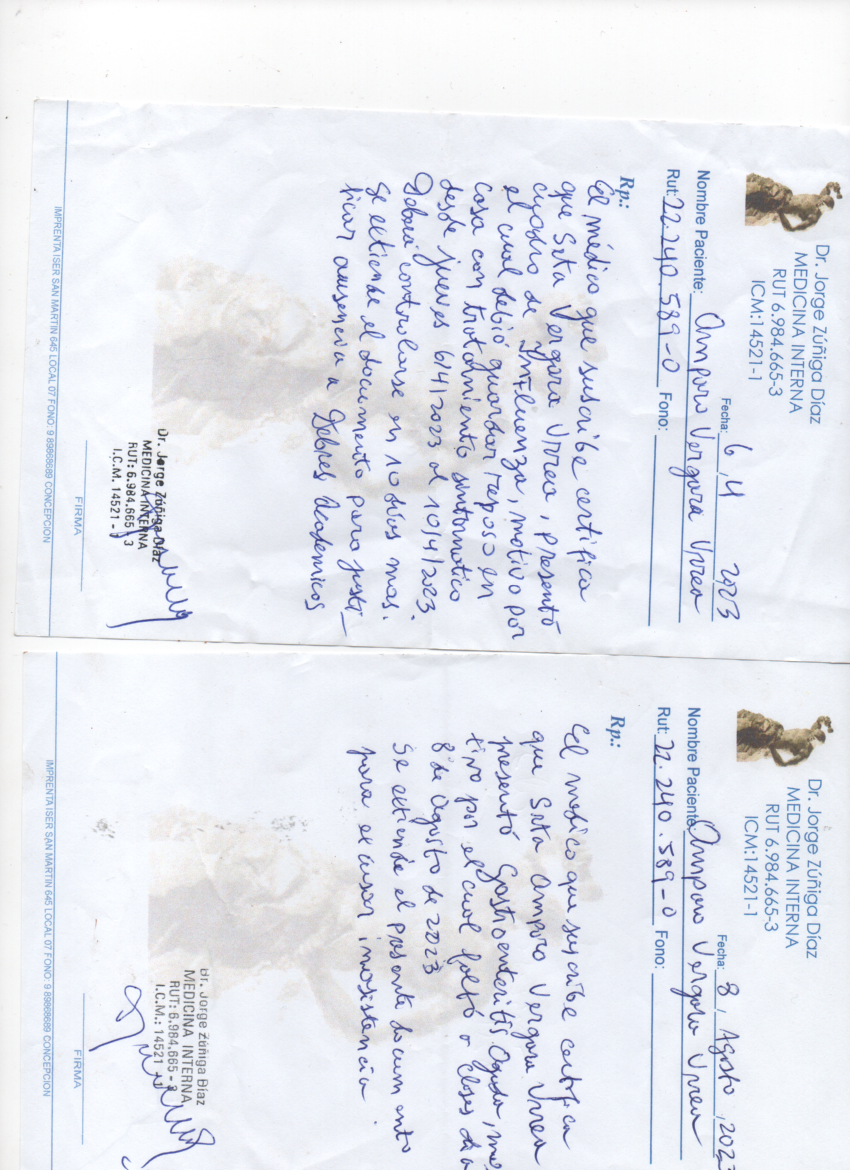 Dr. Jorge Zúñiga Díaz
MEDICINA INTERNA
RUT 6.984.665-3
ICM:14521-1
Fecha: 6/4 2023
Nombre Paciente: Amparo Vergara Urrea
Rut: 22.240.589-0 Fono:
Rp.:
El médico que suscribe certifica
que Srta Vergara Urrea, presentó
cuadro de Influenza, motivo por
el cual debió guardar reposo en
casa con tratamiento sintomatico
desde jueves 6/4/2023 al 10/4/2023.
Deberá controlarse en 10 días mas.
Se extiende el documento para justi_
ficar ausencia a Debres Academicos
Dr. Jorge Zúñiga Díaz
MEDICINA INTERNA
RUT: 6.984.665 - 3
I.C.M. 14521 - 1
FIRMA
IMPRENTA ISER SAN MARTIN 645 LOCAL 07 FONO: 9 89868689 CONCEPCION
Dr. Jorge Zúñiga Díaz
MEDICINA INTERNA
RUT 6.984.665-3
ICM:14521-1
Fecha: 8, Agosto, 2023
Nombre Paciente: Amparo Vergara Urrea
Rut: 22.240.589-0 Fono:
Rp.:
El medico que suscribe certifica
que Srta Amparo Vergara Urrea
presentó Gastroenteritis Aguda, mo
tivo por el cual faltó a clases día
8 de Agosto de 2023
Se extiende el presente documento
para excusar inasistencia.
Dr. Jorge Zúñiga Díaz
MEDICINA INTERNA
RUT: 6.984.665 - 3
I.C.M.: 14521 - 1
FIRMA
IMPRENTA ISER SAN MARTIN 645 LOCAL 07 FONO: 9 89868689 CONCEPCION